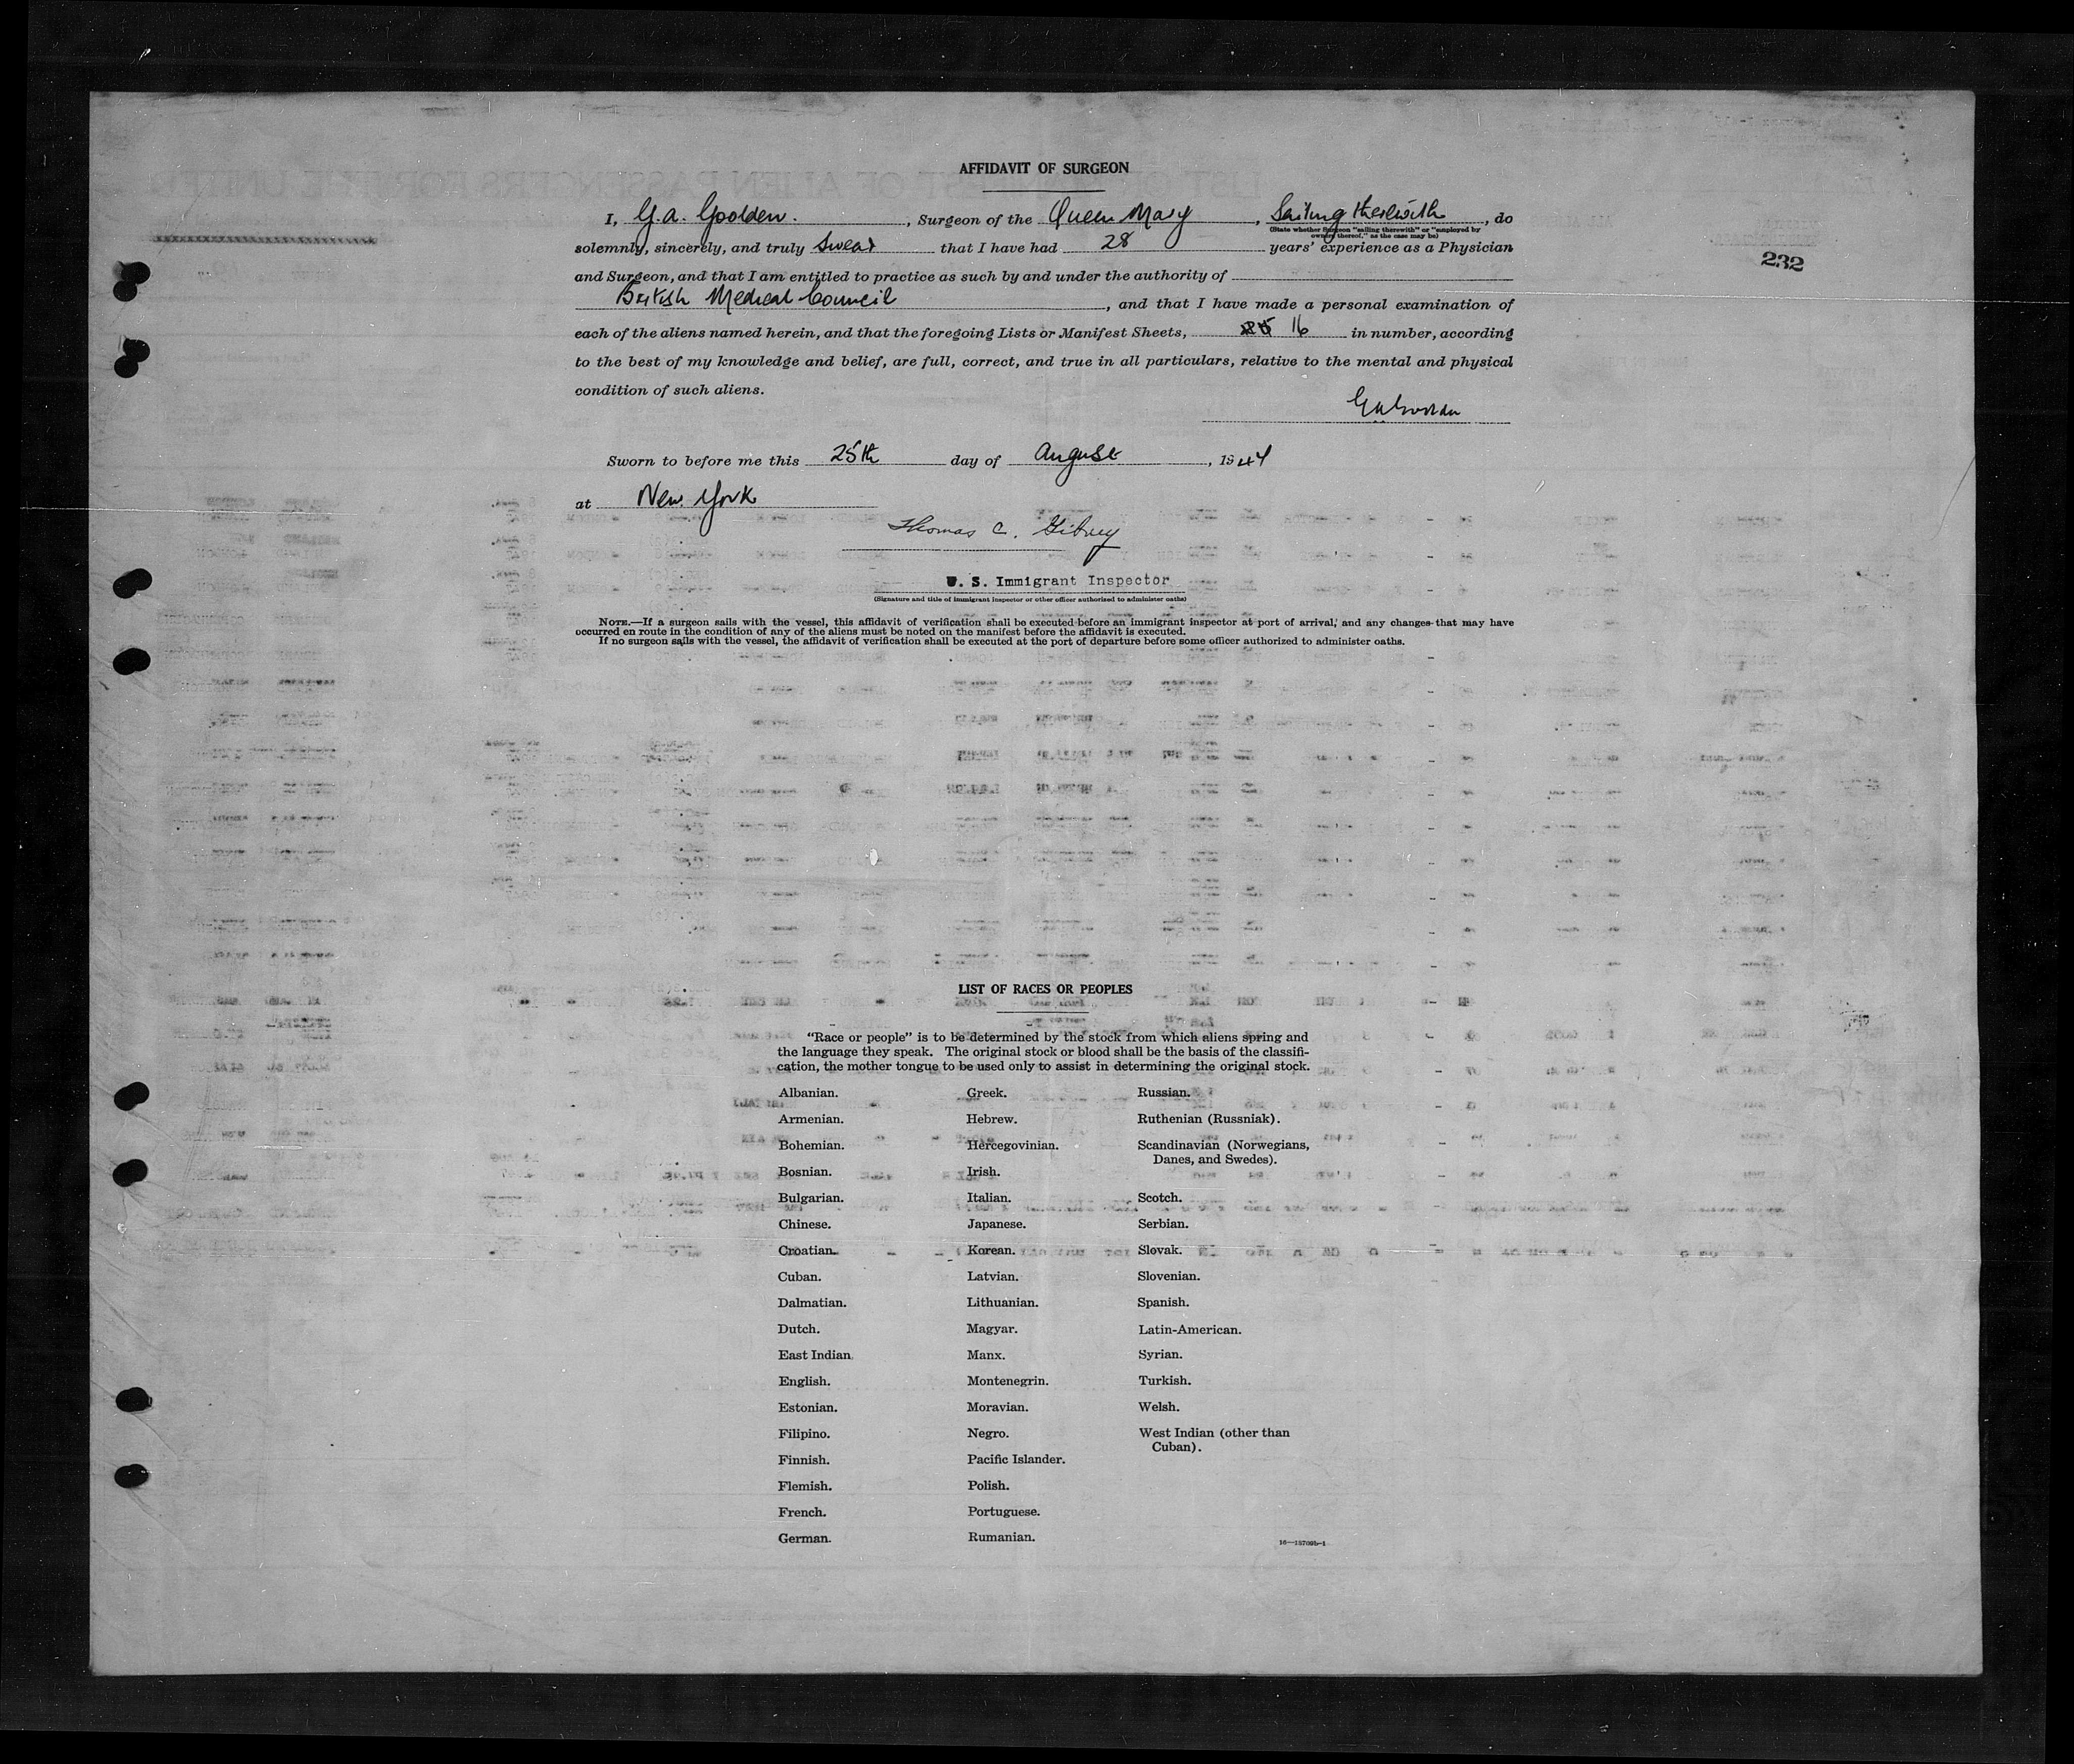 AFFIDAVIT OF SURGEON
232
I, G. A. Goolden. , Surgeon of the Queen Mary , Sailing therewith , do
(State whether Surgeon "sailing therewith" or "employed by
owners thereof," as the case may be)
solemnly, sincerely, and truly swear that I have had 28 years' experience as a Physician
and Surgeon, and that I am entitled to practice as such by and under the authority of
British Medical Council , and that I have made a personal examination of
each of the aliens named herein, and that the foregoing Lists or Manifest Sheets, 16 in number, according
to the best of my knowledge and belief, are full, correct, and true in all particulars, relative to the mental and physical
condition of such aliens.
Sworn to before me this 25th day of August , 1944
at New York
Thomas C. Gibney
U. S. Immigrant Inspector
(Signature and title of immigrant inspector or other officer authorized to administer oaths)
NOTE.—If a surgeon sails with the vessel, this affidavit of verification shall be executed before an immigrant inspector at port of arrival, and any changes that may have
occurred en route in the condition of any of the aliens must be noted on the manifest before the affidavit is executed.
If no surgeon sails with the vessel, the affidavit of verification shall be executed at the port of departure before some officer authorized to administer oaths.
LIST OF RACES OR PEOPLES
"Race or people" is to be determined by the stock from which aliens spring and
the language they speak. The original stock or blood shall be the basis of the classifi-
cation, the mother tongue to be used only to assist in determining the original stock.
Albanian.
Armenian.
Bohemian.
Bosnian.
Bulgarian.
Chinese.
Croatian.
Cuban.
Dalmatian.
Dutch.
East Indian
English.
Estonian.
Filipino.
Finnish.
Flemish.
French.
German.
Greek.
Hebrew.
Hercegovinian.
Irish.
Italian.
Japanese.
Korean.
Latvian.
Lithuanian.
Magyar.
Manx.
Montenegrin.
Moravian.
Negro.
Pacific Islander.
Polish.
Portuguese.
Rumanian.
Russian.
Ruthenian (Russniak).
Scandinavian (Norwegians,
Danes, and Swedes).
Scotch.
Serbian.
Slovak.
Slovenian.
Spanish.
Latin-American.
Syrian.
Turkish.
Welsh.
West Indian (other than
Cuban).